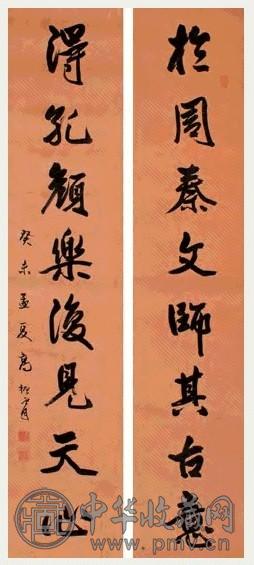 於周秦文師其古意
得孔顏樂後見天心
癸未孟夏高振霄
中华收藏网
www.pmv.cn